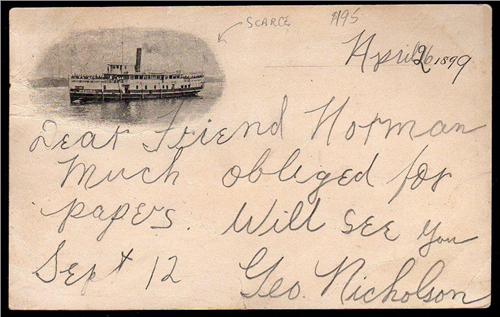 SCARCE
#95
April 26 1899
Dear Friend Norman
Much obliged for
papers. Will see you
Sept 12 Geo. Nicholson